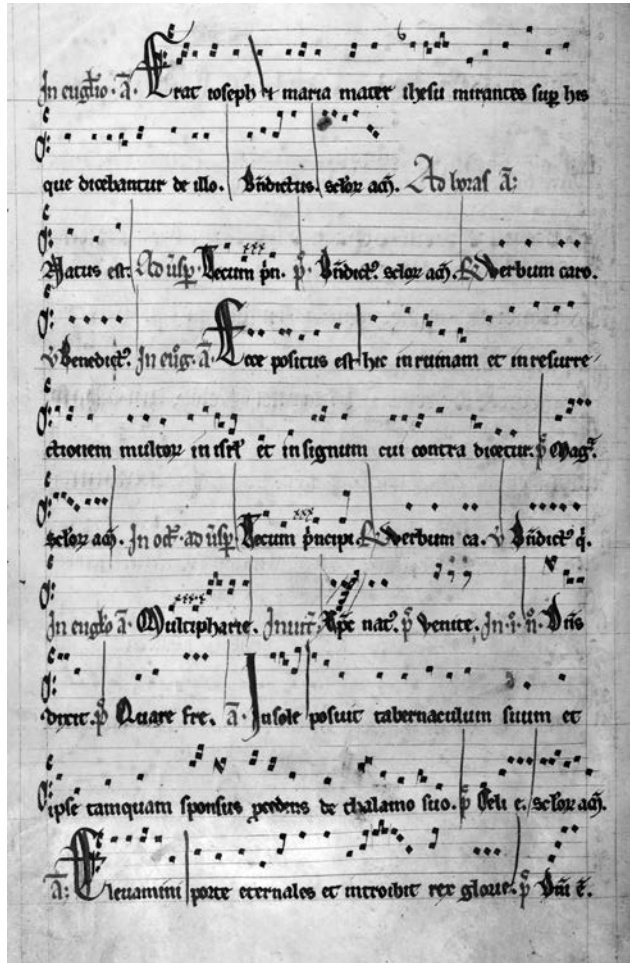 In eugło. a. Erat ioseph et maria mater ihesu mirantes sup his
que dicebantur de illo. Bndictus. sclor am. Ad horas a:
Natus est. Ad usp. Tecum pn. p. Bndict. sclor am. Verbum caro.
v Benedict. In eug. a. Ecce positus est hic in ruinam et in resurre
ctionem multor in isrl et in signum cui contra dicetur. p Mag.
sclor am. In oct. ad usp. Tecum pncipi. Verbum ca. v Bndict q.
In euglo a. Multipharie. Inuit. Xpc nat. p Venite. In. i. n. Dns
dixit. p Quare fre. a. In sole posuit tabernaculum suum et
ipse tamquam sponsus pcedens de thalamo suo. p Celi e. sclor am.
a: Eleuamini porte eternales et introibit rex glorie. p Dni e.